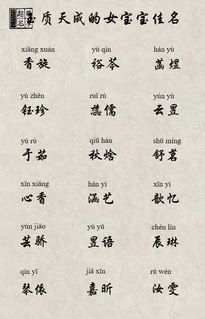 玉质天成的女宝宝佳名
xiāng xuán yù qín hán yù
香旋 裕芩 菡煜
yù zhēn ruǐ rú yún yù
钰珍 蕊儒 云昱
yú rú qiū hán shū míng
于茹 秋焓 舒茗
xīn xiāng hán yì xīn yì
心香 涵艺 歆忆
yún jiāo yù yǔ chén lín
芸骄 昱语 辰琳
qín yī jiā xīn rǔ wén
琴依 嘉昕 汝雯